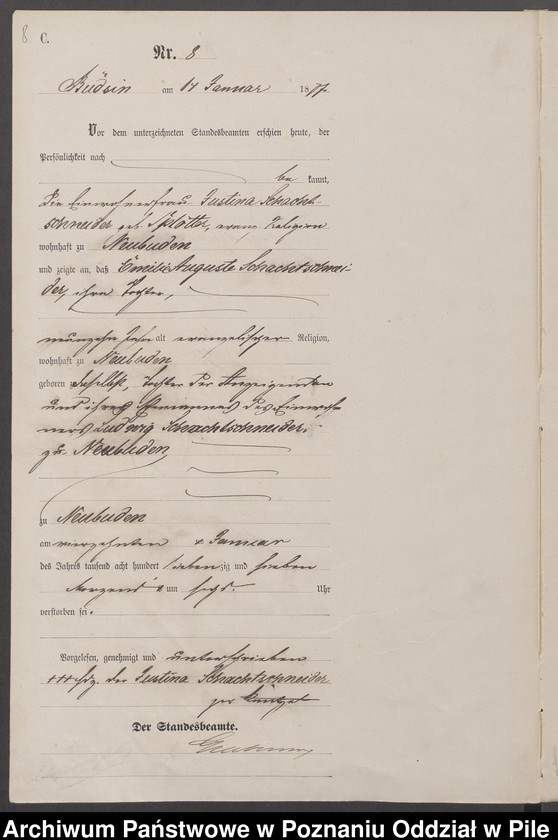 8
C.
Nr. 8
Büdsin am 14 Januar 1877
Vor dem unterzeichneten Standesbeamten erschien heute, der
Persönlichkeit nach
be kannt,
die Einwohnerfrau Justina Schacht-
schneider geb. evang. Religion
wohnhaft zu Neubuden
und zeigte an, daß Emilie Auguste Schachtschnei-
der, ihre Tochter,
neunzehn Jahr alt evangelischer Religion,
wohnhaft zu Neubuden
geboren zu daselbst, Tochter der Anzeigenden
und ihres Ehemannes des Einwoh-
ners Ludwig Schachtschneider,
zu Neubuden
zu Neubuden
am vierzehnten Januar
des Jahres tausend acht hundert siebenzig und sieben
Morgens um sechs Uhr
verstorben sei.
Vorgelesen, genehmigt und unterschrieben
+++ Hdz. der Justina Schachtschneider
Der Standesbeamte.
Archiwum Państwowe w Poznaniu Oddział w Pile